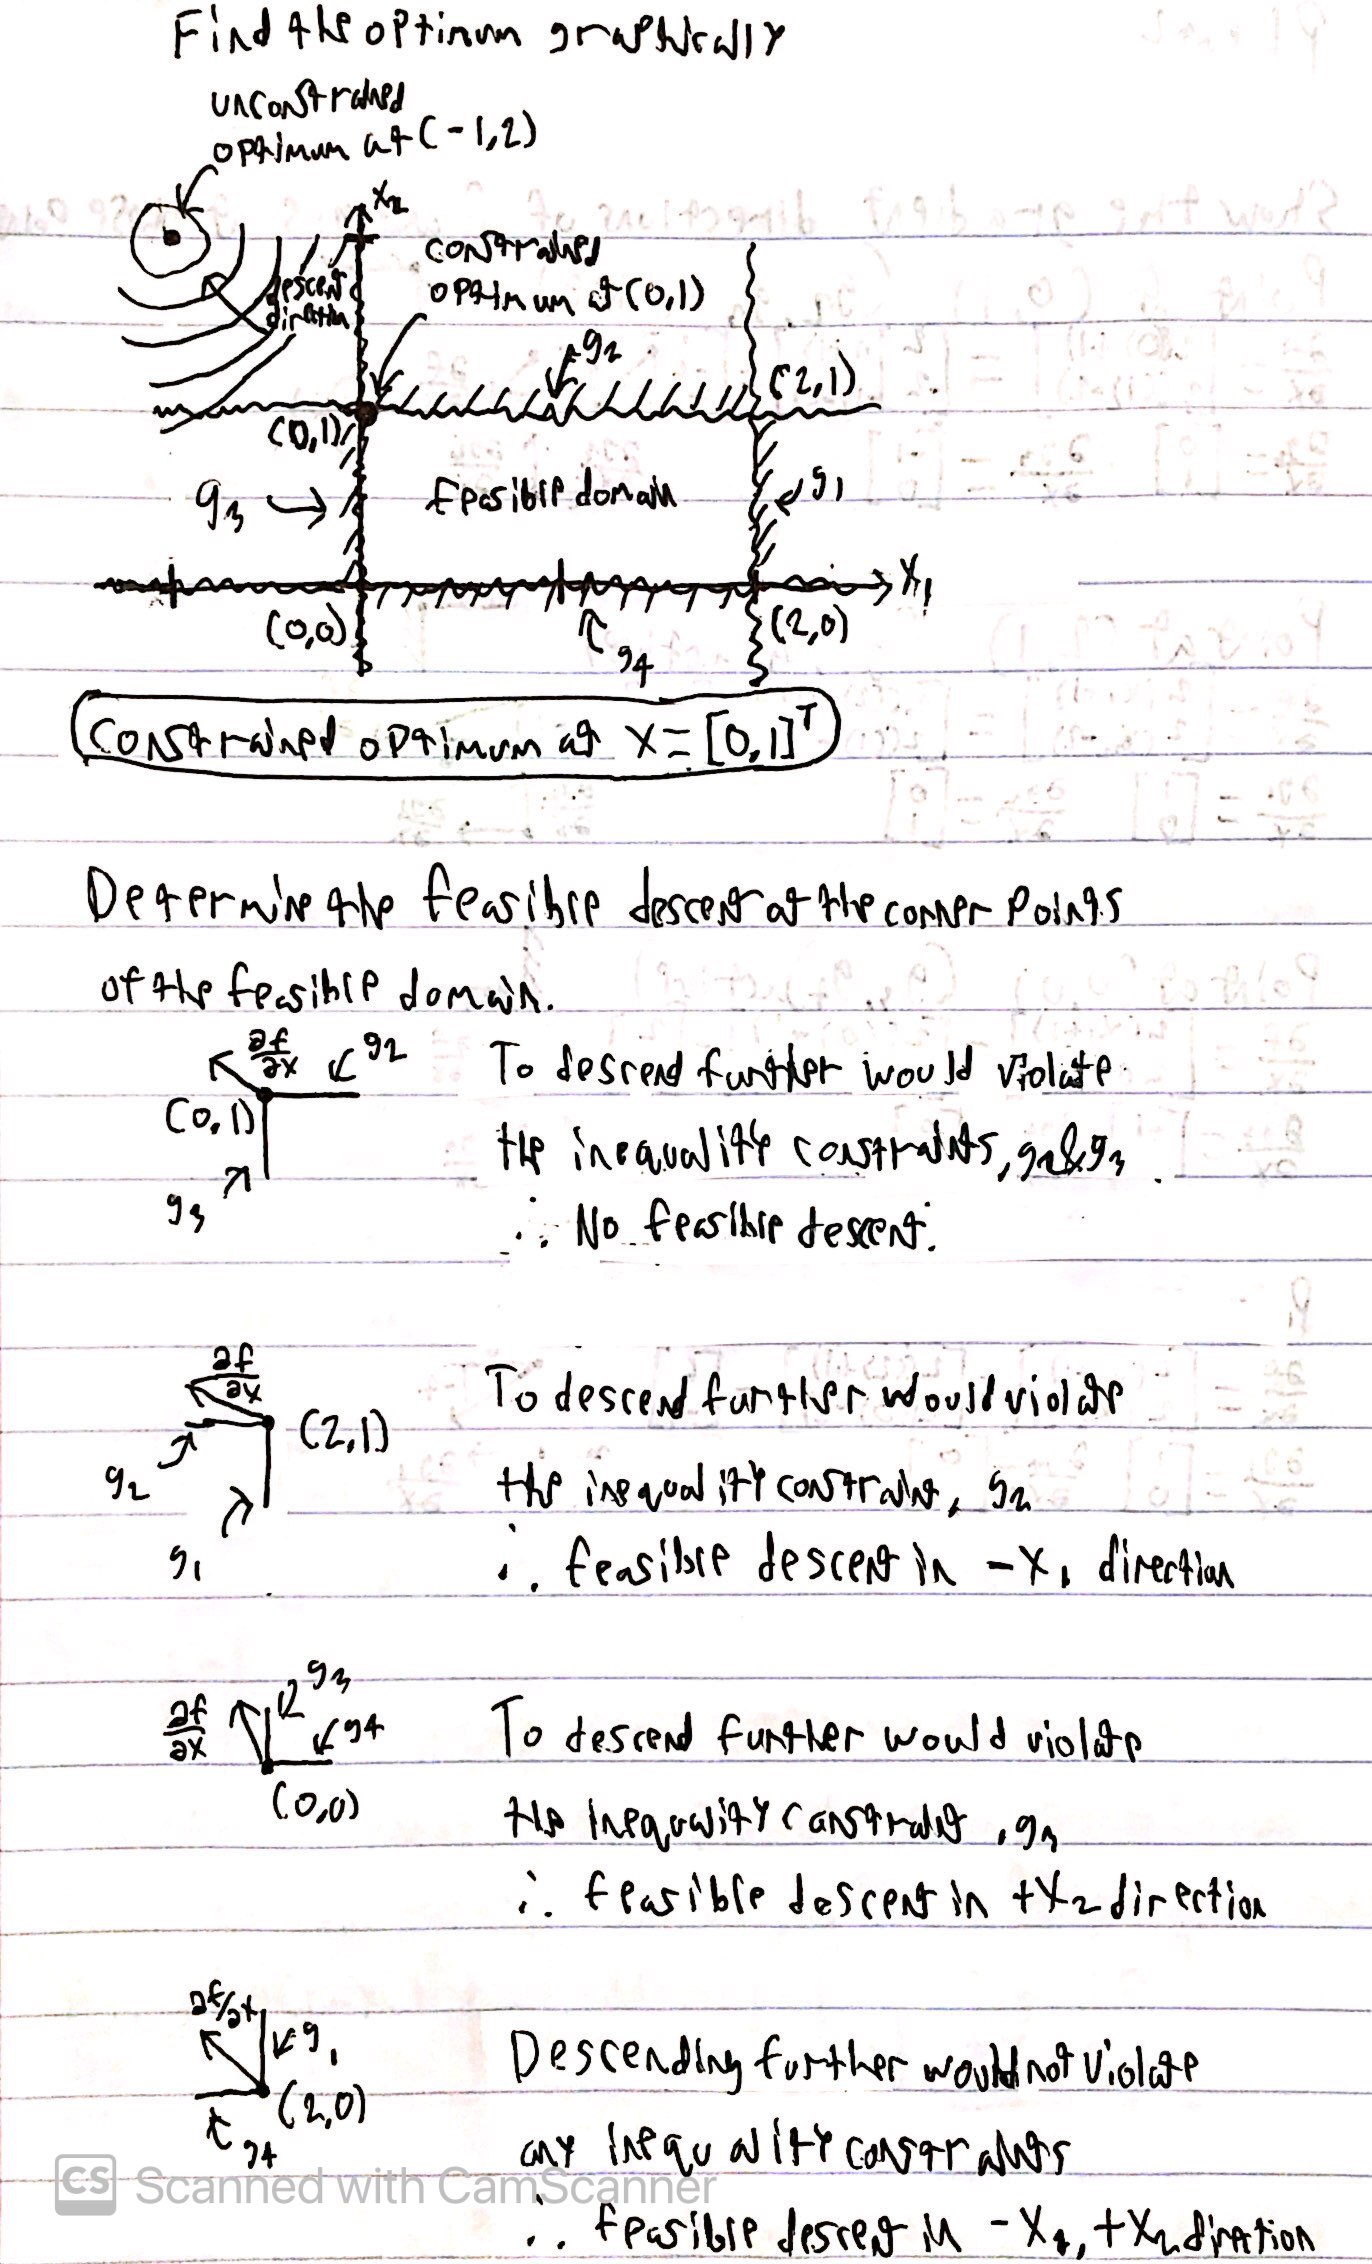 Find the optimum graphically
unconstrained
optimum at (-1,2)
x₂
constrained
optimum at (0,1)
descent
direction
g₂
(2,1)
(0,1)
g₃
feasible domain
g₁
x₁
(0,0)
(2,0)
g₄
Constrained optimum at x = [0,1]ᵀ
Determine the feasible descent at the corner points
of the feasible domain.
∂f/∂x g₂
To descend further would violate
(0,1)
the inequality constraints, g₂ & g₃
g₃
∴ No feasible descent.
∂f/∂x
To descend further would violate
(2,1)
g₂
the inequality constraint, g₂
g₁
∴ feasible descent in -x₁ direction
g₃
∂f/∂x
g₄
To descend further would violate
(0,0)
the inequality constraint, g₃
∴ feasible descent in +x₂ direction
∂f/∂x
g₁
Descending further would not violate
(2,0)
g₄
any inequality constraints
CS Scanned with CamScanner
∴ feasible descent in -x₁, +x₂ direction